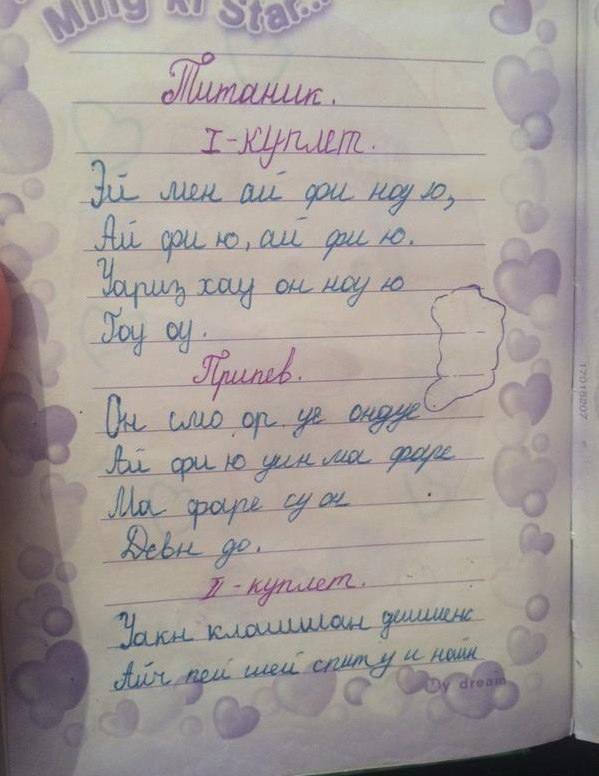 Ming ki Star...
Титаник.
I-куплет.
Эй мен ай фи ноу ю,
Ай фи ю, ай фи ю.
Уариз хау он ноу ю
Гоу оу.
Припев.
Он смо ор уе ондуе
Ай фи ю уин ма фаре
Ма фаре су он
Девн до.
II-куплет.
Уакн клашшан дишшенс
Айч пей шей спиту и найн
My dream
17018207